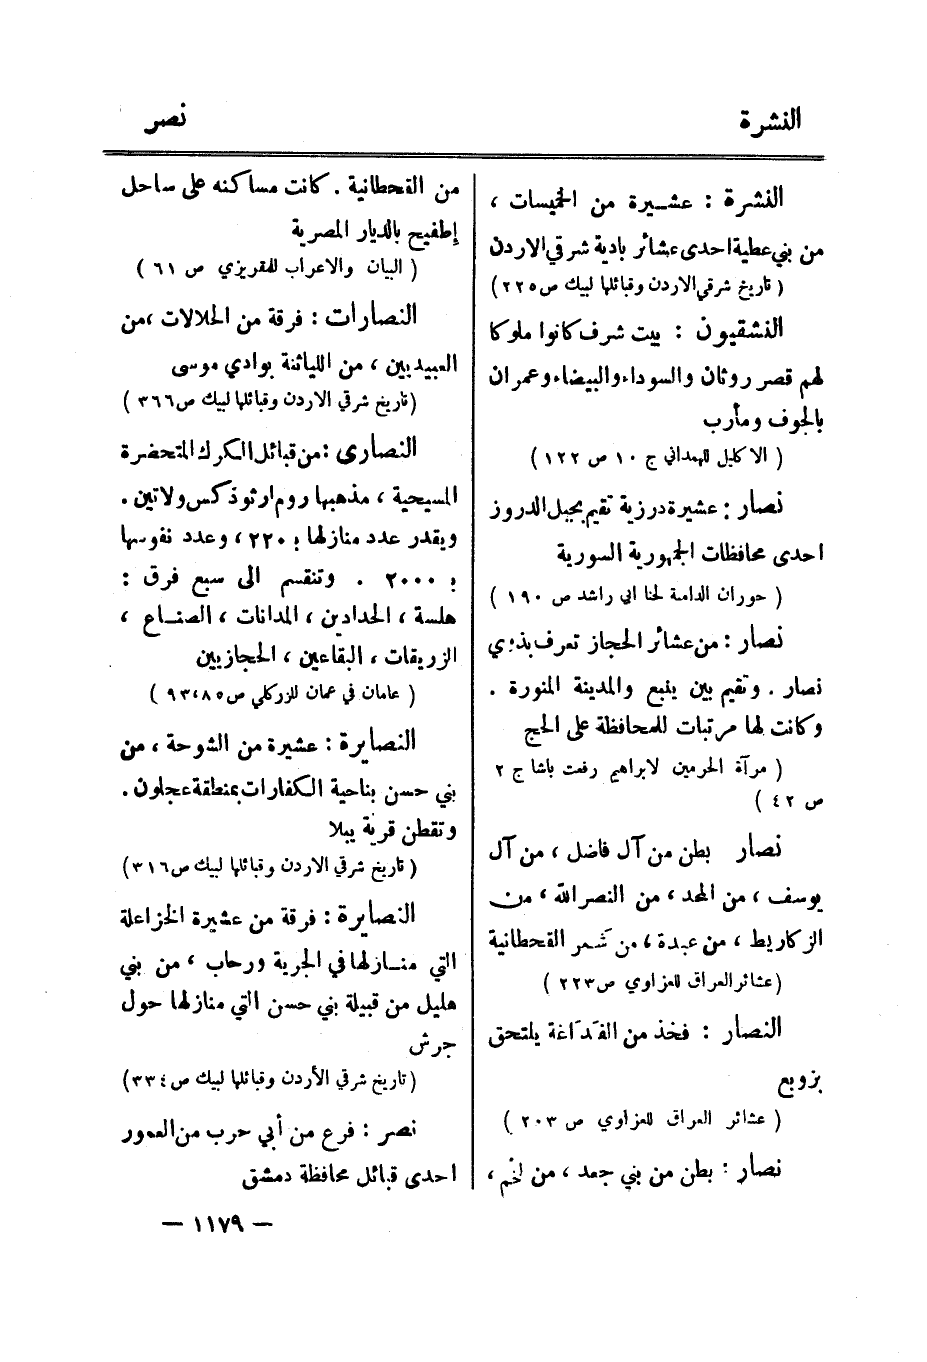 النشرة
نصر
النشرة : عشيرة من الخميسات ،
من بني عطية احدى عشائر بادية شرقي الاردن
( تاريخ شرقي الاردن وقبائلها لبيك ص ٢٢٥ )
النشقيون : بيت شرف كانوا ملوكا
لهم قصر روثان والسوداء والبيضاء وعمران
بالجوف ومأرب
( الاكليل للهمداني ج ١٠ ص ١٢٢ )
نصار : عشيرة درزية تقيم بجبل الدروز
احدى محافظات الجمهورية السورية
( حوران الدامية لحنا ابي راشد ص ١٩٠ )
نصار : من عشائر الحجاز تعرف بذوي
نصار . وتقيم بين ينبع والمدينة المنورة .
وكانت لها مرتبات للمحافظة على الحج
( مرآة الحرمين لابراهيم رفعت باشا ج ٢
ص ٤٢ )
نصار بطن من آل فاضل ، من آل
يوسف ، من المحمد ، من النصرالله ، من
الزكاريط ، من عبدة ، من شمر القحطانية
( عشائر العراق للعزاوي ص ٢٢٣ )
النصار : فخذ من القداغة يلتحق
بزوبع
( عشائر العراق للعزاوي ص ٢٠٣ )
نصار : بطن من بني جعد ، من لخم ،
من القحطانية . كانت مساكنه على ساحل
إطفيح بالديار المصرية
( البيان والاعراب للمقريزي ص ٦١ )
النصارات : فرقة من الحلالات ، من
العبيديين ، من اللياثنة بوادي موسى
( تاريخ شرقي الاردن وقبائلها لبيك ص ٣٦٦ )
النصارى : من قبائل الكرك المتحضرة
المسيحية ، مذهبها روم ارثوذكس ولاتين .
ويقدر عدد منازلها بـ ٢٢٠ ، وعدد نفوسها
بـ ٢٠٠٠ . وتنقسم الى سبع فرق :
هلسة ، الحدادين ، المدانات ، الصناع ،
الزريقات ، البقاعين ، الحجازيين
( عامان في عمان للزركلي ص ٨٥ ، ٩٣ )
النصايرة : عشيرة من الشوحة ، من
بني حسن بناحية الكفارات بمنطقة عجلون .
وتقطن قرية يبلا
( تاريخ شرقي الاردن وقبائلها لبيك ص ٣١٦ )
النصايرة : فرقة من عشيرة الخزاعلة
التي منازلها في الجرية ورحاب ، من بني
هليل من قبيلة بني حسن التي منازلها حول
جرش
( تاريخ شرقي الأردن وقبائلها لبيك ص ٣٣٤ )
نصر : فرع من أبي حرب من العمور
احدى قبائل محافظة دمشق
— ١١٧٩ —